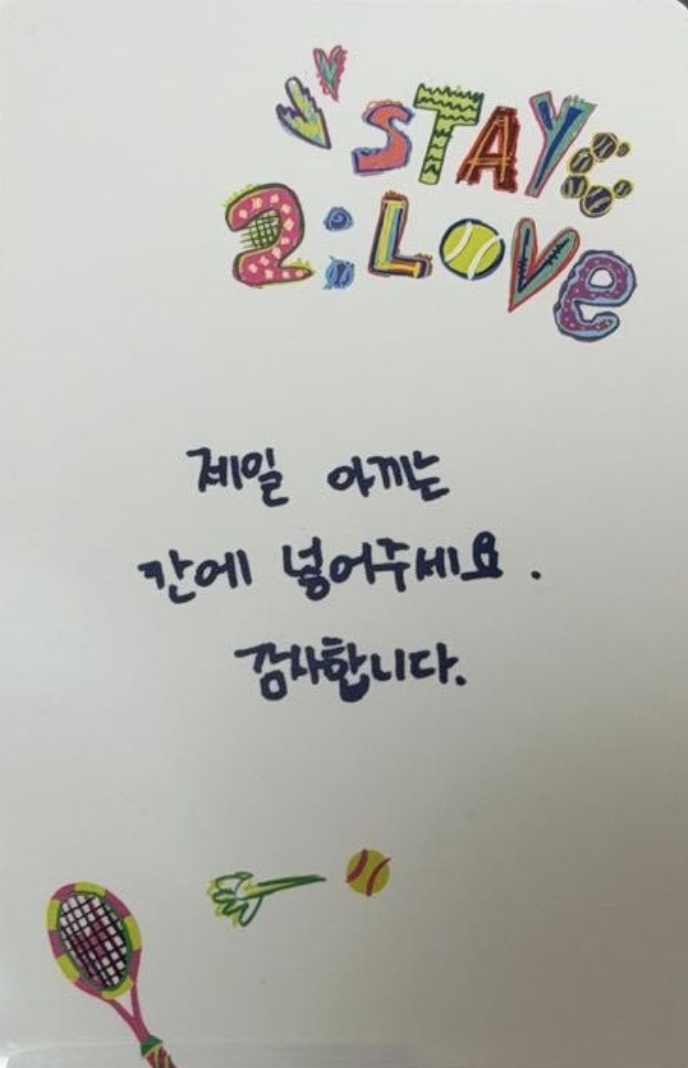 STAYC
2:LOVE
제일 아끼는
칸에 넣어주세요.
감사합니다.